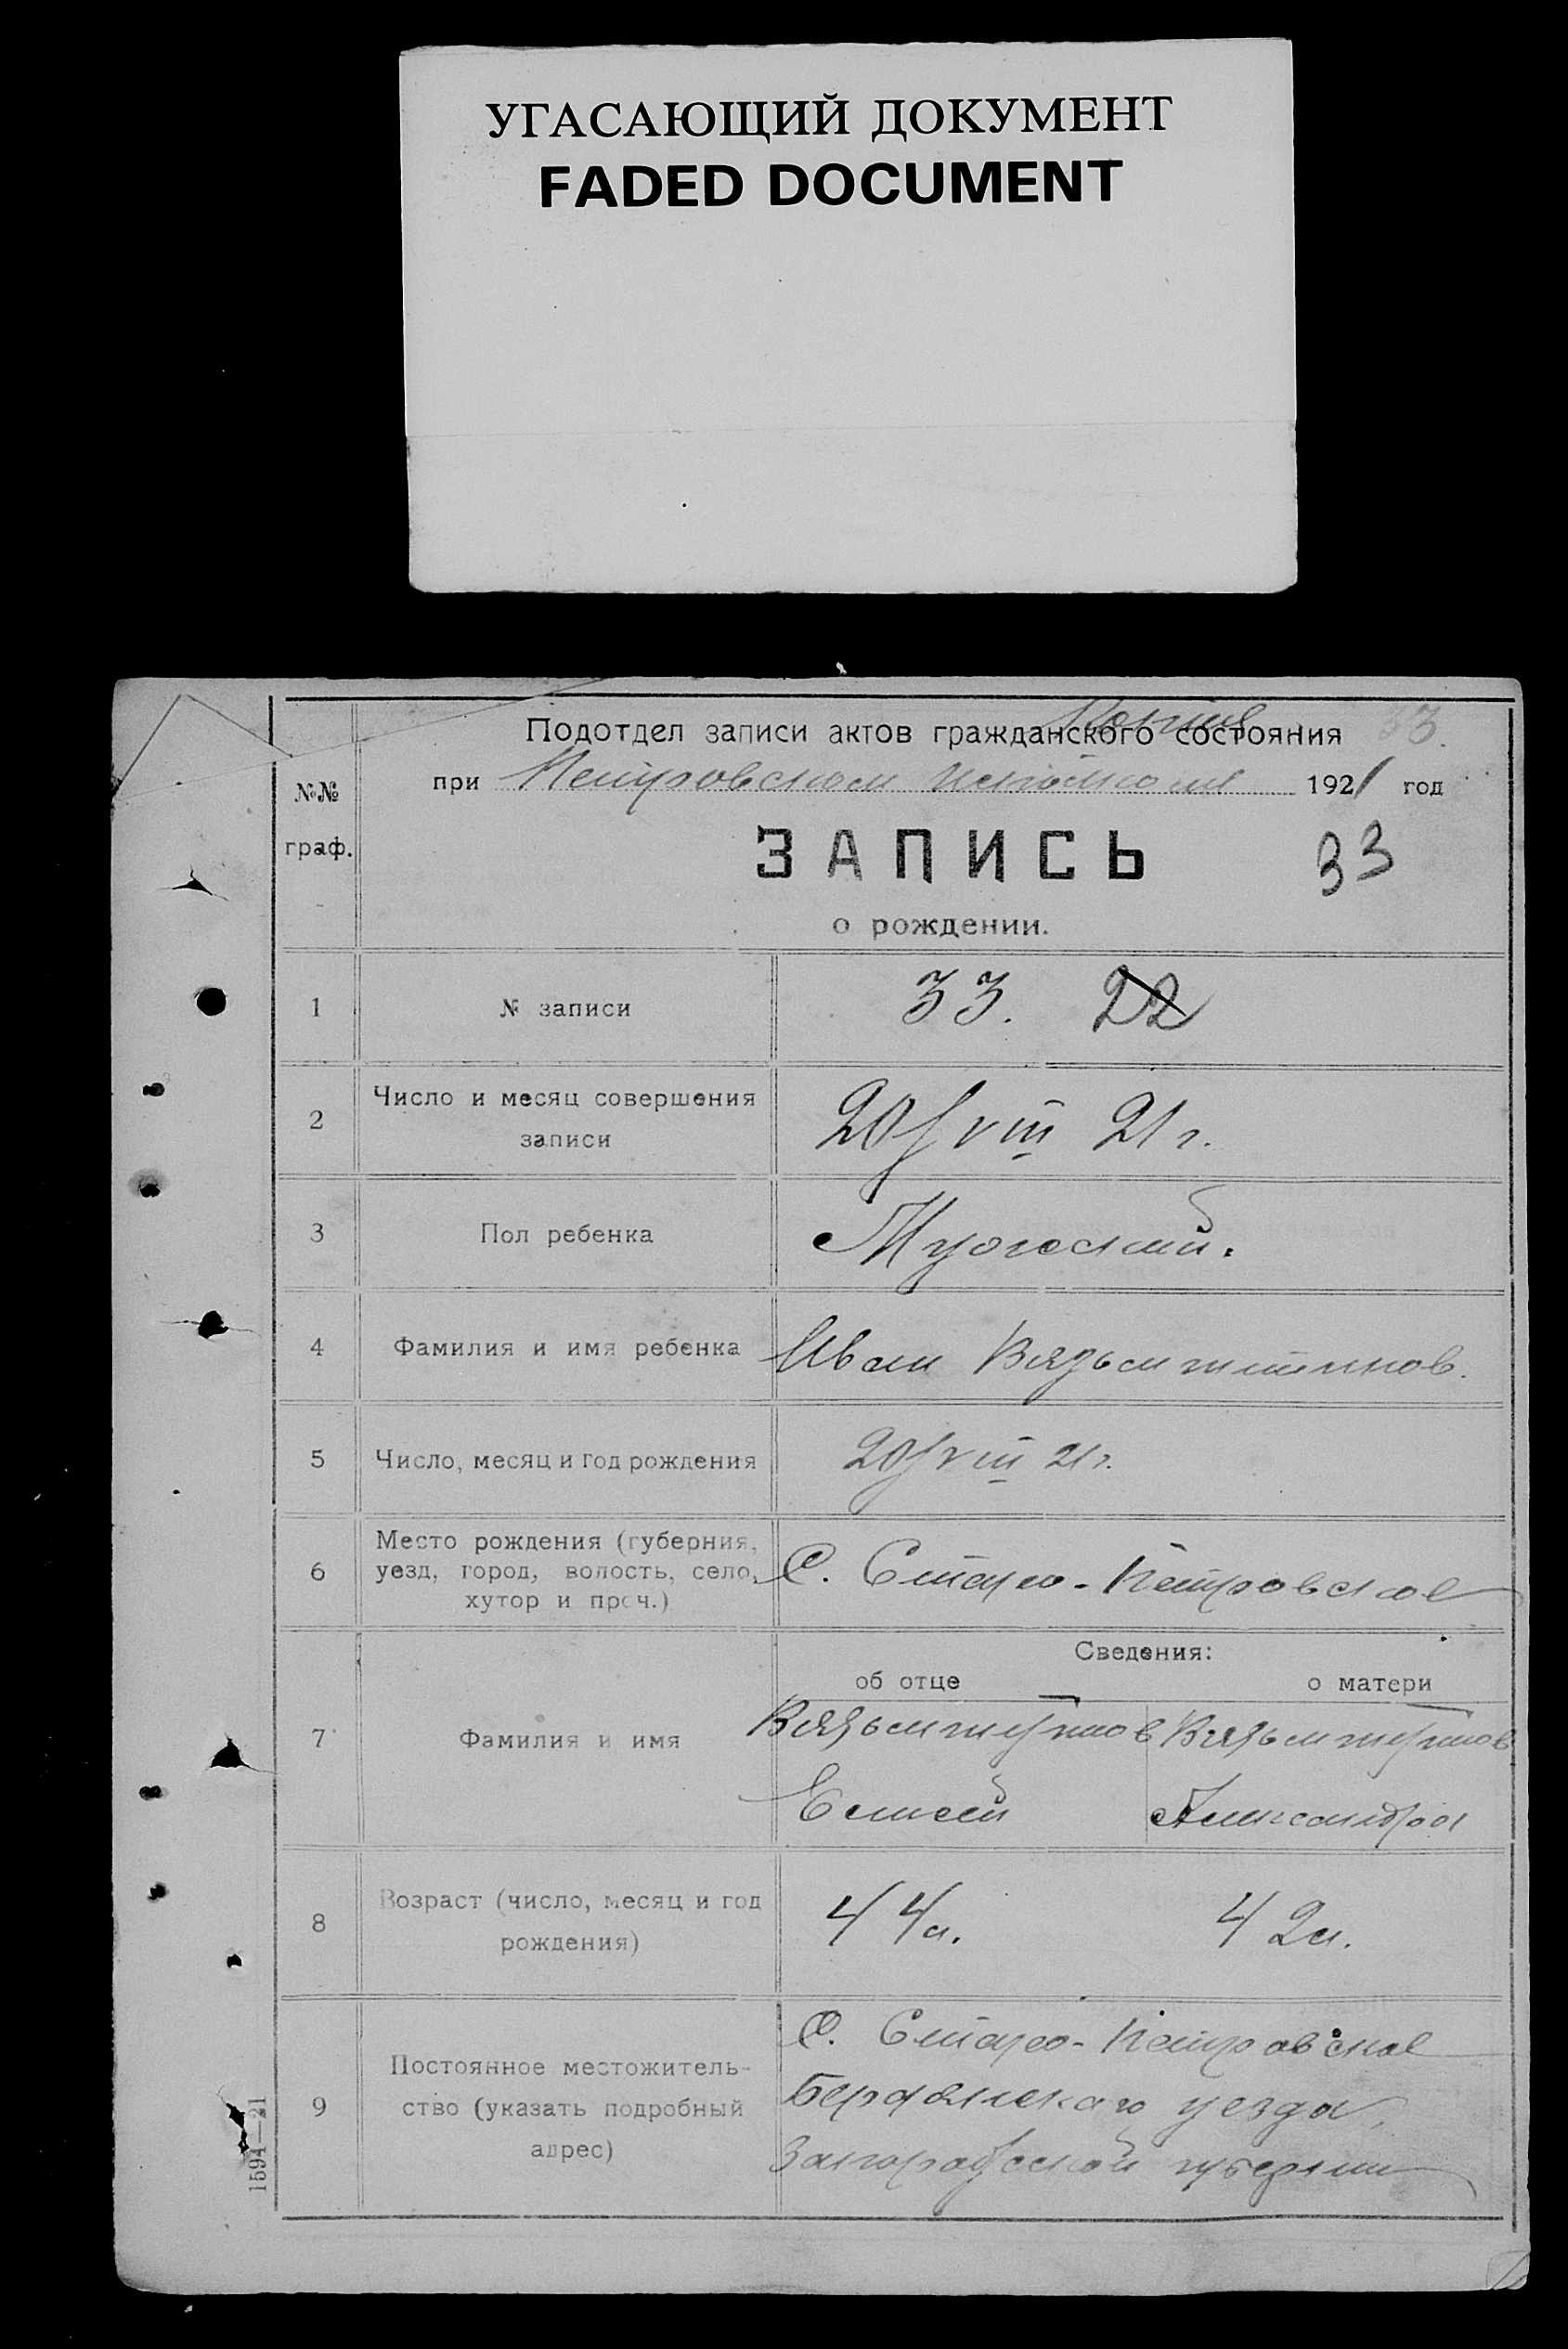 УГАСАЮЩИЙ ДОКУМЕНТ
FADED DOCUMENT
Подотдел записи актов гражданского состояния
Копия
33.
при Петровском исполкоме 1921 год
№№
граф.
ЗАПИСЬ
33
о рождении.
1 № записи 33. 22
2 Число и месяц совершения
записи
20/VIII 21 г.
3 Пол ребенка Мужеский.
4 Фамилия и имя ребенка Иван Вязьмитинов.
5 Число, месяц и год рождения 20/VIII 21 г.
6 Место рождения (губерния,
уезд, город, волость, село,
хутор и проч.)
С. Старо-Петровское
Сведения:
об отце о матери
7 Фамилия и имя
Елисей Александра
8 Возраст (число, месяц и год
рождения)
44 л. 42 л.
9 Постоянное местожитель-
ство (указать подробный
адрес)
С. Старо-Петровское
Бердянскаго уезда,
губернии
1594—21